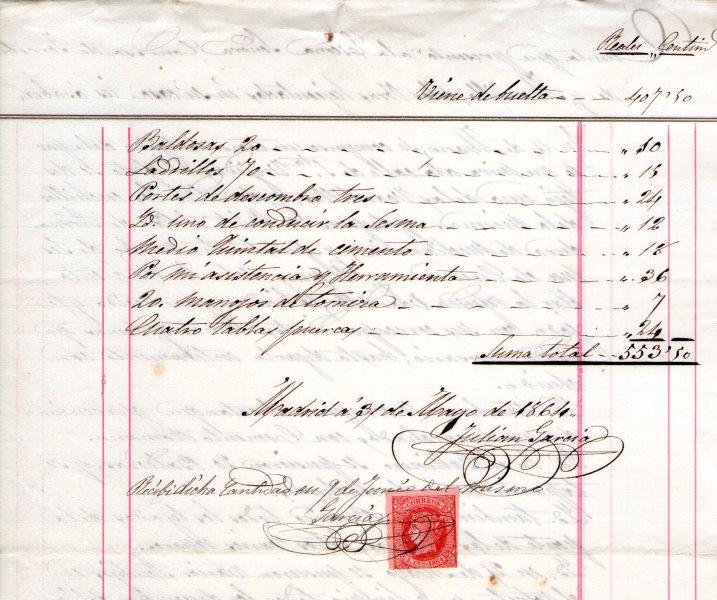 Reales „ Centim
Viene de buelta - - 407'50
Baldosas 20 " 10
Ladrillos 70 " 15
Portes de descombro tres " 24
Id. uno de conducir la Lesma " 12
Medio Quintal de cimento " 18
Por mi asistencia y Herramienta " 36
20. manojos de tomiza " 7
Cuatro tablas puercas " 24
Suma total - - 553'50
Madrid á 31 de Mayo de 1864.
Julian García
Recibi dicha Cantidad en 9 de Junio del mismo
García
CORREOS